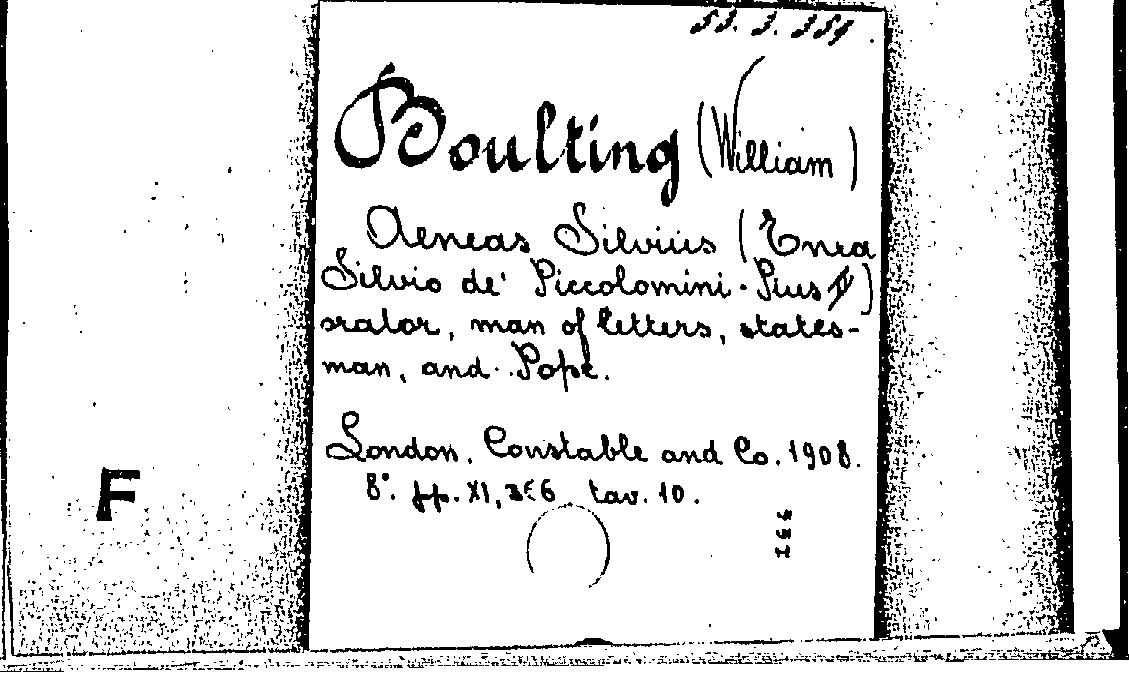 53. 3. 359
Boulting (William)
Aeneas Silvius (Enea
Silvio de' Piccolomini - Pius II)
orator, man of letters, states-
man, and Pope.
London, Constable and Co. 1908.
8°. pp. XI, tav. 10.
F